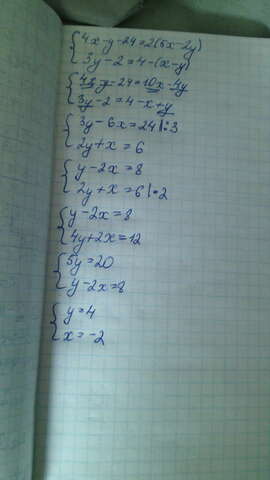 4x-y-24=2(5x-2y)
3y-2=4-(x-y)
4x-y-24=10x-4y
3y-2=4-x+y
3y-6x=24|:3
2y+x=6
y-2x=8
2y+x=6|·2
y-2x=8
4y+2x=12
5y=20
y-2x=8
y=4
x=-2